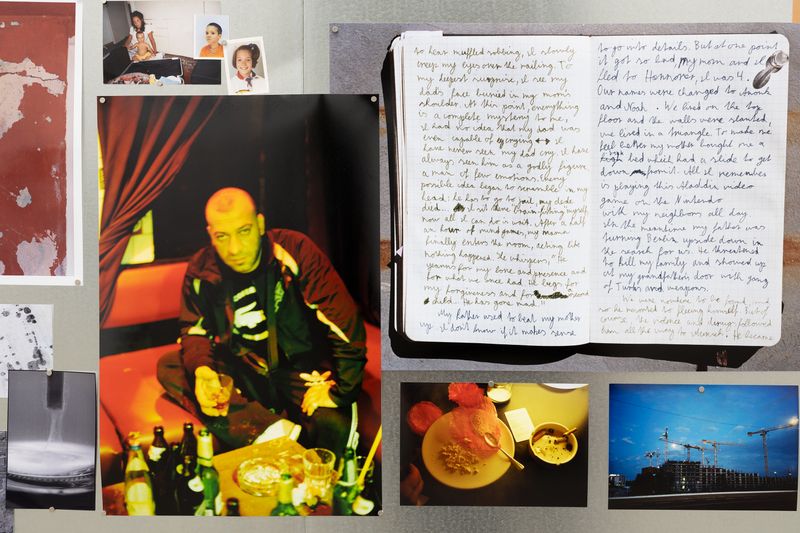 to hear muffled sobbing, I slowly
creep my eyes over the railing. To
my deepest surprise, I see my
dad's face buried in my mom's
shoulder. At this point, everything
is a complete mystery to me,
I had no idea that my dad was
even capable of crying I
have never seen my dad cry. I have
always seen him as a godly figure,
a man of few emotions. Every
possible idea began to scramble in my
head: he has to go to jail, my dede
died... I sit there brain-fucking myself
now all I can do is wait. After a half
an hour of mind games, my mama
finally enters the room, acting like
nothing happened. He whispers, "He
yearns for my love and presence and
for what we once had. He begs for
my forgiveness and for
died. He has gone mad."
My father used to beat my mother
up. I don't know if it makes sense
to go into details. But at one point
it got so bad, my mom and I
fled to Hannover, I was 4.
Our names were changed to Anouk
and Noah. We lived on the top
floor and the walls were slanted,
we lived in a triangle. To make me
feel better my mother bought me a
high bed which had a slide to get
down from it. All I remember
is playing this Aladdin video
game on the Nintendo
with my neighbors all day
In the meantime my father was
turning Berlin upside down in
the search for us. He threatened
to kill my family and showed up
at my grandfather's door with gang
of Turks and weapons.
We were nowhere to be found, and
so he resorted to fleeing himself. But of
course the violence and drugs followed
him all the way to He became